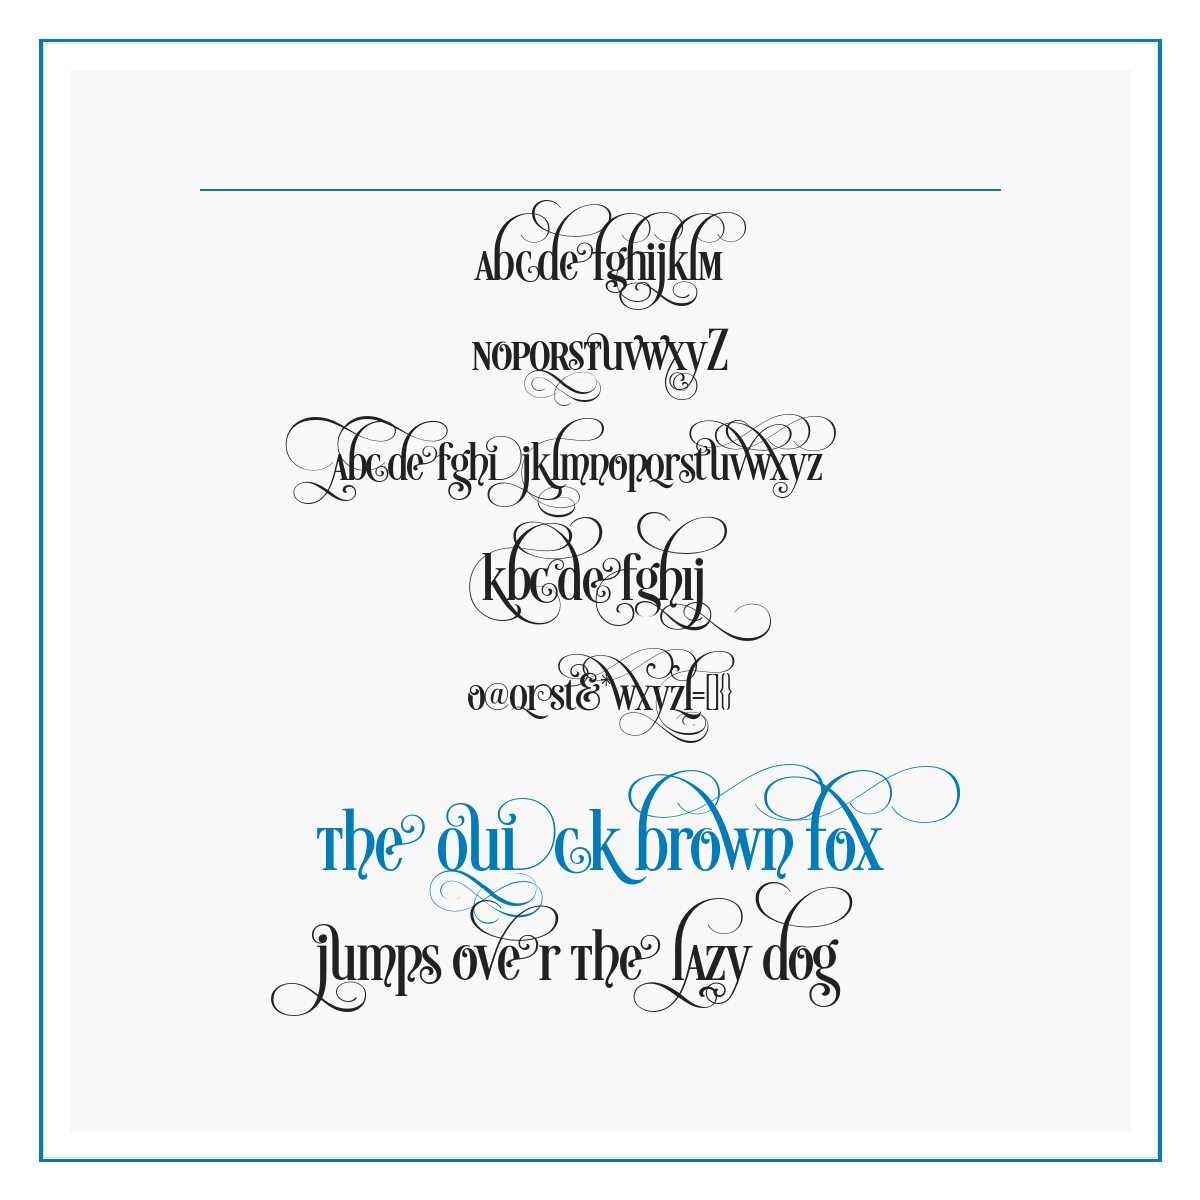 Abcde fghijklM
NOPQRSTUVWXYZ
Abcde fghi jklmnopqrstuvwxyz
kbcde fghij
o@qrst&*wxyzl=[]{}
The quick brown fox
jumps over the lazy dog